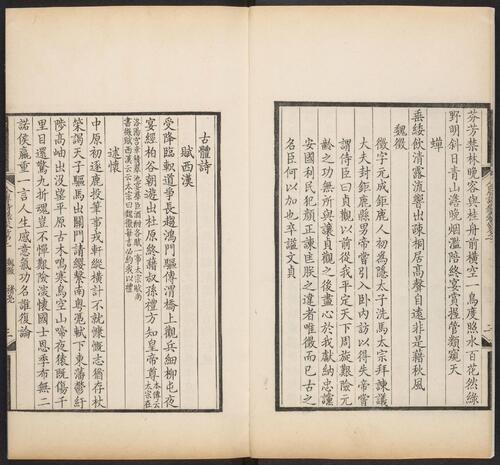 芬芳禁林晚容與桂舟前橫空一鳥度照水百花然綠
野明斜日青山澹晚煙濫陪終宴賞握管類窺天
蟬
垂緌飲清露流響出疎桐居高聲自遠非是藉秋風
魏徵
徵字元成鉅鹿人初為隱太子洗馬太宗拜諫議
大夫封鉅鹿縣男帝嘗引入卧內訪以得失帝嘗
謂侍臣曰貞觀以前從我平定天下周旋艱險元
齡之功無所與讓貞觀之後盡心於我獻納忠讜
安國利民犯顏正諫匡朕之違者唯徵而已古之
名臣何以加也卒諡文貞
古體詩
賦西漢
受降臨軹道爭長趣鴻門驅傳渭橋上觀兵細柳屯夜
宴經柏谷朝遊出杜原終藉叔孫禮方知皇帝尊本傳云太宗在
洛陽宮幸積翠池宴羣臣酒酣各賦一事太宗賦尚
書徵賦西漢云云太宗曰魏徵每言必約我以禮
述懷
中原初逐鹿投筆事戎軒縱橫計不就慷慨志猶存杖
策謁天子驅馬出關門請纓繫南粵憑軾下東藩鬱紆
陟高岫出沒望平原古木鳴寒鳥空山啼夜猿既傷千
里目還驚九折魂豈不憚艱險深懷國士恩季布無二
諾侯嬴重一言人生感意氣功名誰復論